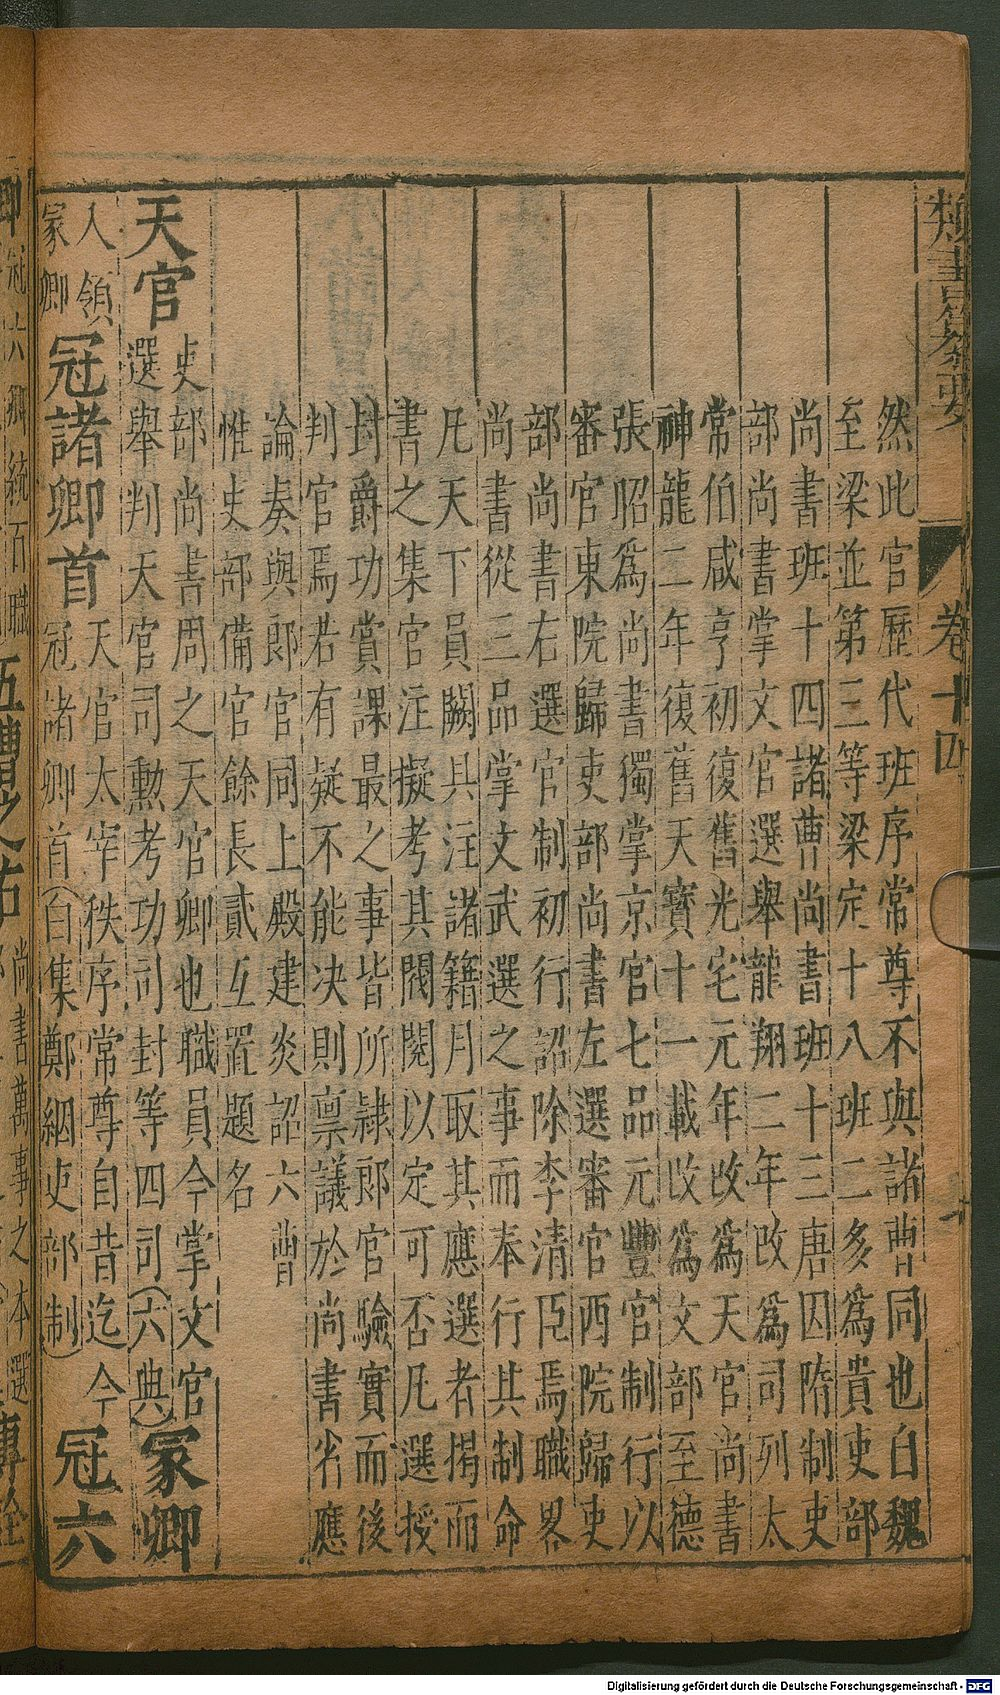 類書纂要 卷十四
然此官歷代班序常尊不與諸曹同也自魏
至梁並第三等梁定十八班二多爲貴吏部
尚書班十四諸曹尚書班十三唐因隋制吏
部尚書掌文官選舉龍翔二年改爲司列太
常伯咸亨初復舊光宅元年改爲天官尚書
神龍二年復舊天寶十一載改爲文部至德
張昭爲尚書獨掌京官七品元豐官制行以
審官東院歸吏部尚書左選審官西院歸吏
部尚書右選官制初行詔除李清臣焉職畧
尚書從三品掌文武選之事而奉行其制命
凡天下員闕具注諸籍月取其應選者揭而
書之集官注擬考其閥閱以定可否凡選授
封爵功賞課最之事皆所隷郎官驗實而後
判官焉若有疑不能决則禀議於尚書省應
論奏與郎官同上殿建炎詔六曹
惟吏部備官餘長貳互置題名
天官
吏部尚書周之天官卿也職員今掌文官
選舉判天官司勲考功司封等四司(六典)
冢卿
入領
冢卿
冠諸卿首
天官太宰秩序常尊自昔迄今
冠諸卿首(白集鄭絪吏部制)
冠六
卿
尚書萬事之本